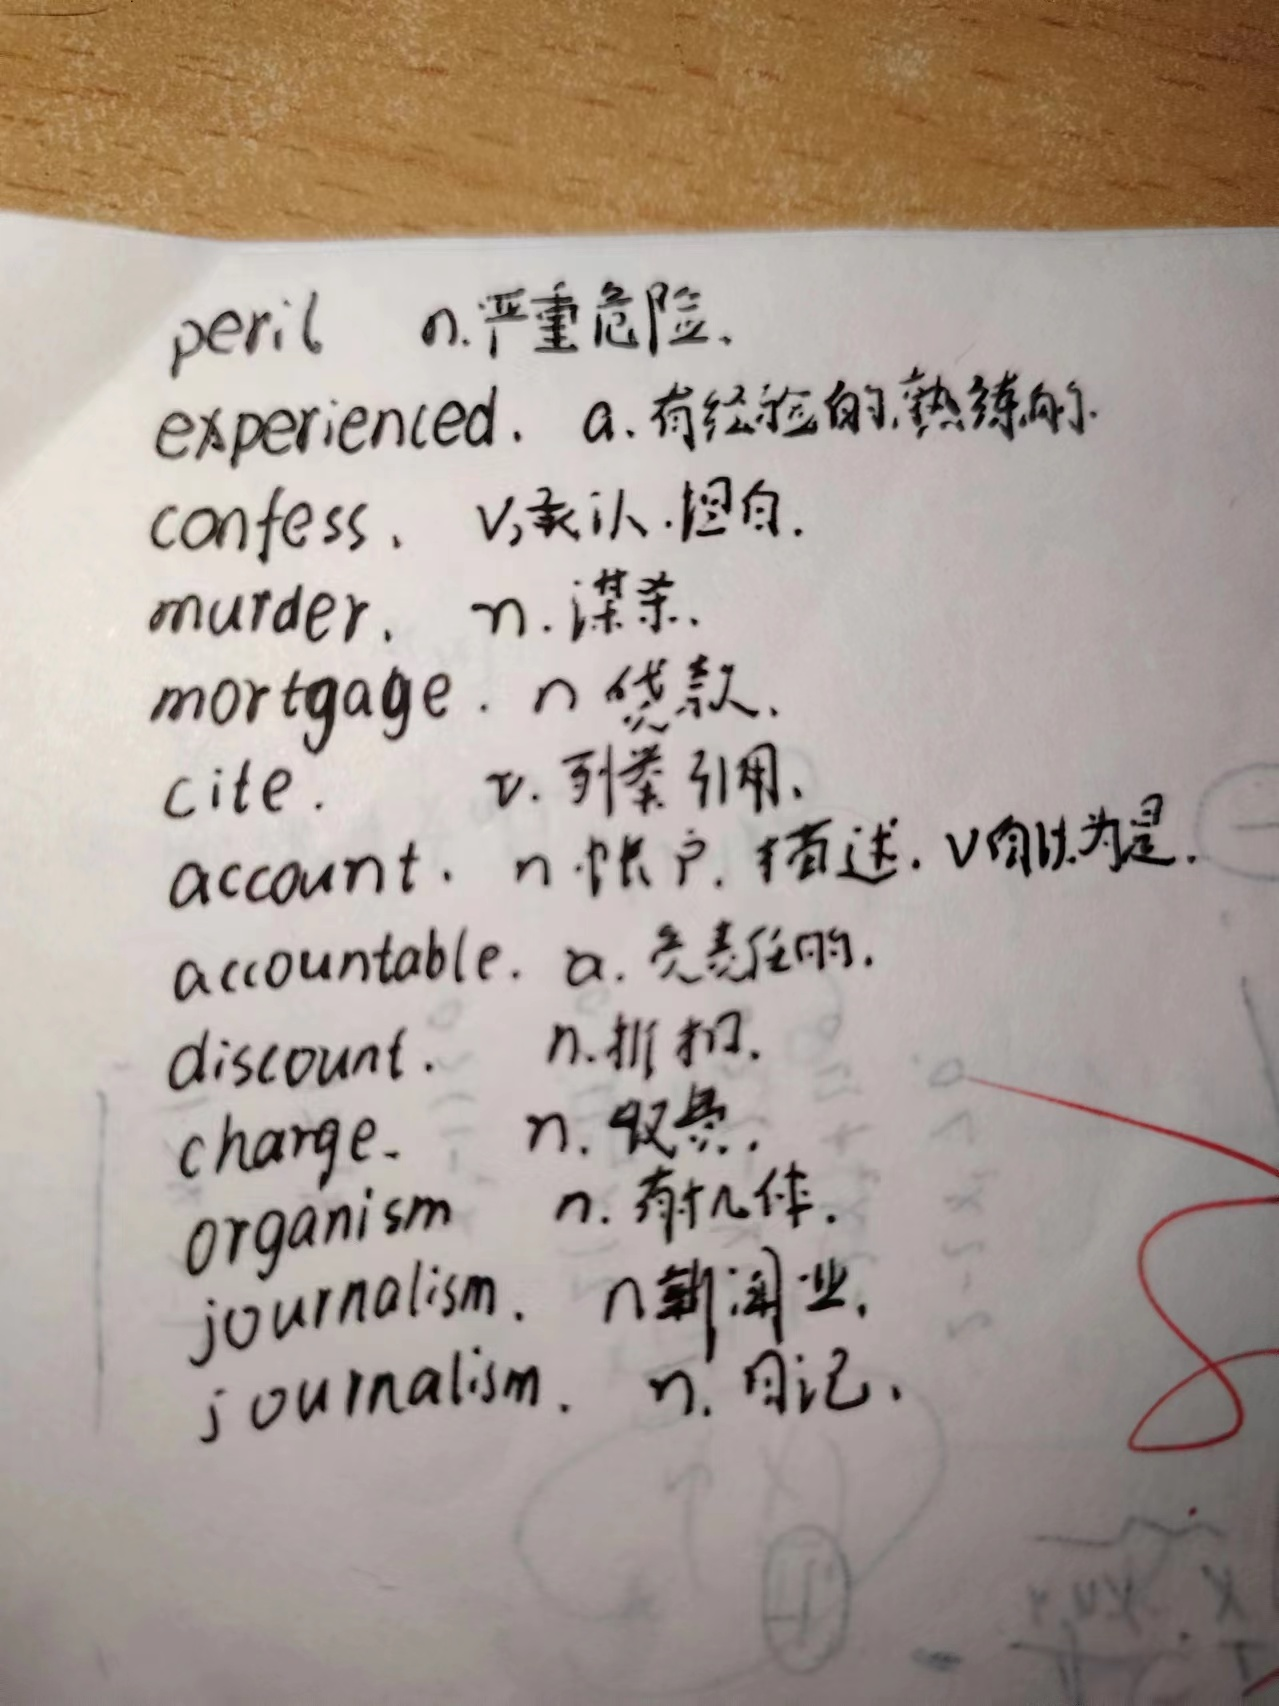 peril n.严重危险.
experienced. a.有经验的.熟练的.
confess. v,承认.坦白.
murder. n.谋杀.
mortgage. n 贷款.
cite. v.列举引用.
account. n.帐户.描述. v自以为是.
accountable. a.负责任的.
discount. n.折扣.
charge. n.
organism n.有机体.
journalism. n新闻业.
journalism. n.日记.